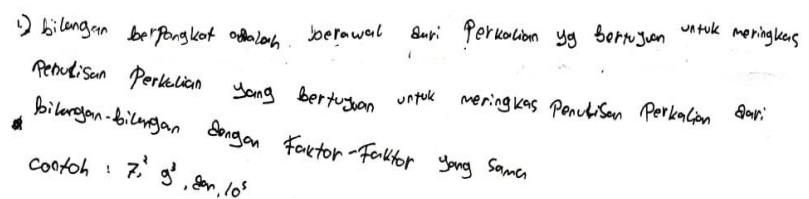 1.) bilangan berpangkat adalah berawal dari Perkalian yg bertujuan untuk meringkas
Penulisan Perkalian yang bertujuan untuk meringkas Penulisan Perkalian dari
bilangan-bilangan dengan Faktor-Faktor yang Sama
Contoh : 7,² 9³, dan, 10⁵